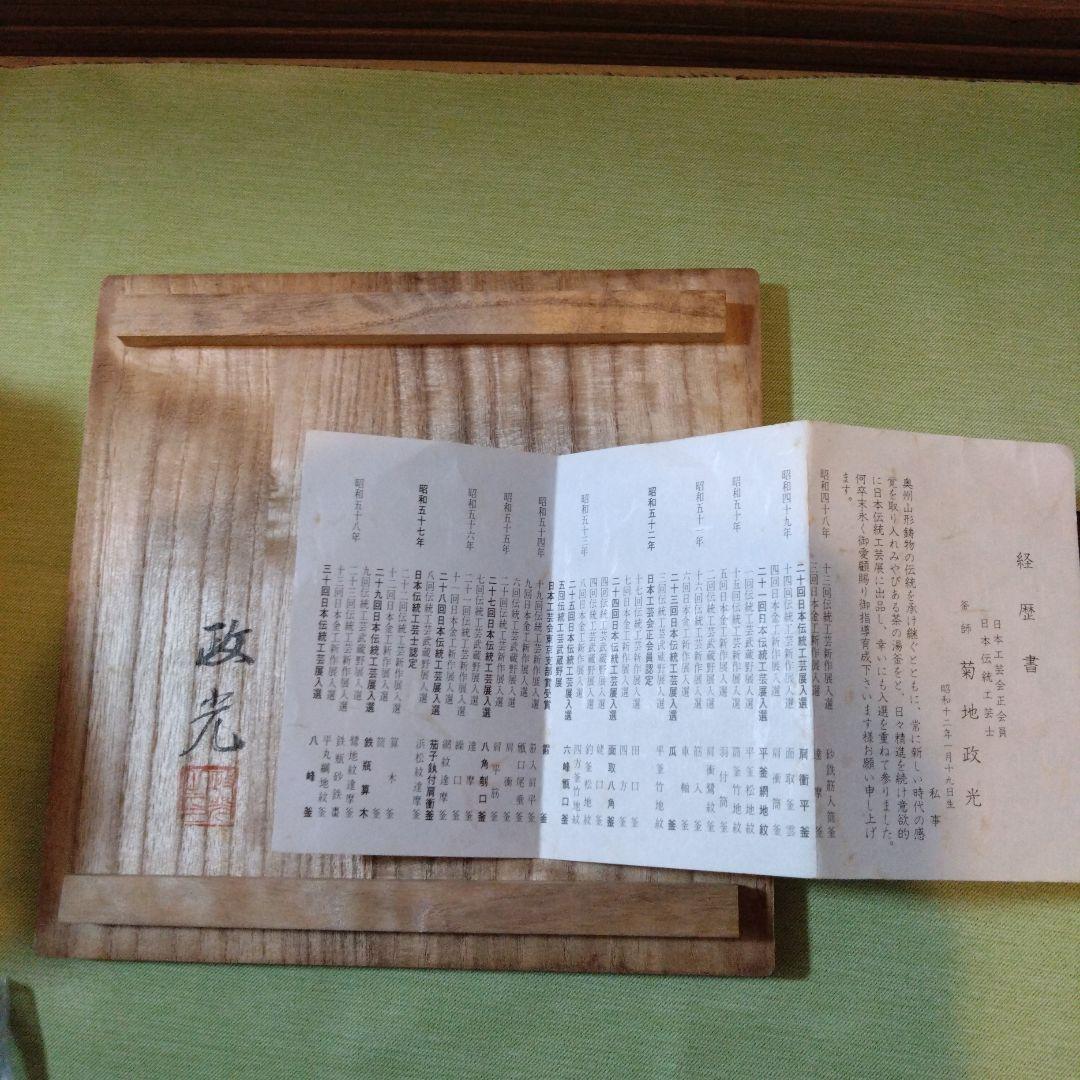 経歴書
日本工芸会正会員
日本伝統工芸士
釜師 菊地政光
昭和十二年一月十九日生
私事
奥州山形鋳物の伝統を承け継ぐとともに、常に新しい時代の感
覚を取り入れみやびある茶の湯釜をと、日々精進を続け意欲的
に日本伝統工芸展に出品し、幸いにも入選を重ねて参りました。
何卒末永く御愛顧賜り御指導育成下さいます様お願い申し上げ
ます。
昭和四十八年 十三回伝統工芸新作展入選 砂鉄筋入筒釜
三回日本金工新作展入選 達摩釜
二十回日本伝統工芸展入選 肩衝平釜
昭和四十九年 十四回伝統工芸新作展入選 面取釜雲
四回日本金工新作展入選 肩衝筒釜
二十一回日本伝統工芸展入選 平釜網地紋
昭和五十年 一回伝統工芸武蔵野展入選 平釜松地紋
十五回伝統工芸新作展入選 筒釜竹地紋
五回日本金工新作展入選 羽付筒釜
二回伝統工芸武蔵野展入選
昭和五十一年 十六回伝統工芸新作展入選 筋入釜
六回日本金工新作展入選 車軸釜
二十三回日本伝統工芸展入選 瓜釜
三回伝統工芸武蔵野展入選 平釜竹地紋
昭和五十二年 日本工芸会正会員認定
十七回伝統工芸新作展入選 田口釜
七回日本金工新作展入選 四方釜
二十四回日本伝統工芸展入選 面取八角釜
四回伝統工芸武蔵野展入選 姥口釜
昭和五十三年
二十五回日本伝統工芸展入選 四方釜竹地紋
五回伝統工芸武蔵野展 六峰甑口釜
日本工芸会東京支部賞受賞 霰
昭和五十四年 十九回伝統工芸新作展入選 筋入肩平釜
九回日本金工新作展入選 甑口尾垂釜
六回伝統工芸武蔵野展入選 肩衝釜
昭和五十五年 肩平筋釜
二十七回日本伝統工芸展入選 八角刻口釜
七回伝統工芸武蔵野展入選 達摩釜
昭和五十六年 二十一回伝統工芸新作展入選 繰口釜
十一回日本金工新作展入選 達摩釜
二十八回日本伝統工芸展入選 網紋達摩釜
八回伝統工芸武蔵野展入選 茄子鈇付肩衝釜
昭和五十七年 日本伝統工芸士認定 浜松紋達摩釜
二十二回伝統工芸新作展入選 算木釜
十二回日本金工新作展入選 筒釜
二十九回日本伝統工芸展入選 鉄瓶算木
九回伝統工芸武蔵野展入選 鷺地紋達摩釜
昭和五十八年 二十三回伝統工芸新作展入選 鉄瓶砂鉄棗
十三回日本金工新作展入選 平丸網地紋釜
三十回日本伝統工芸展入選 八峰釜
政光